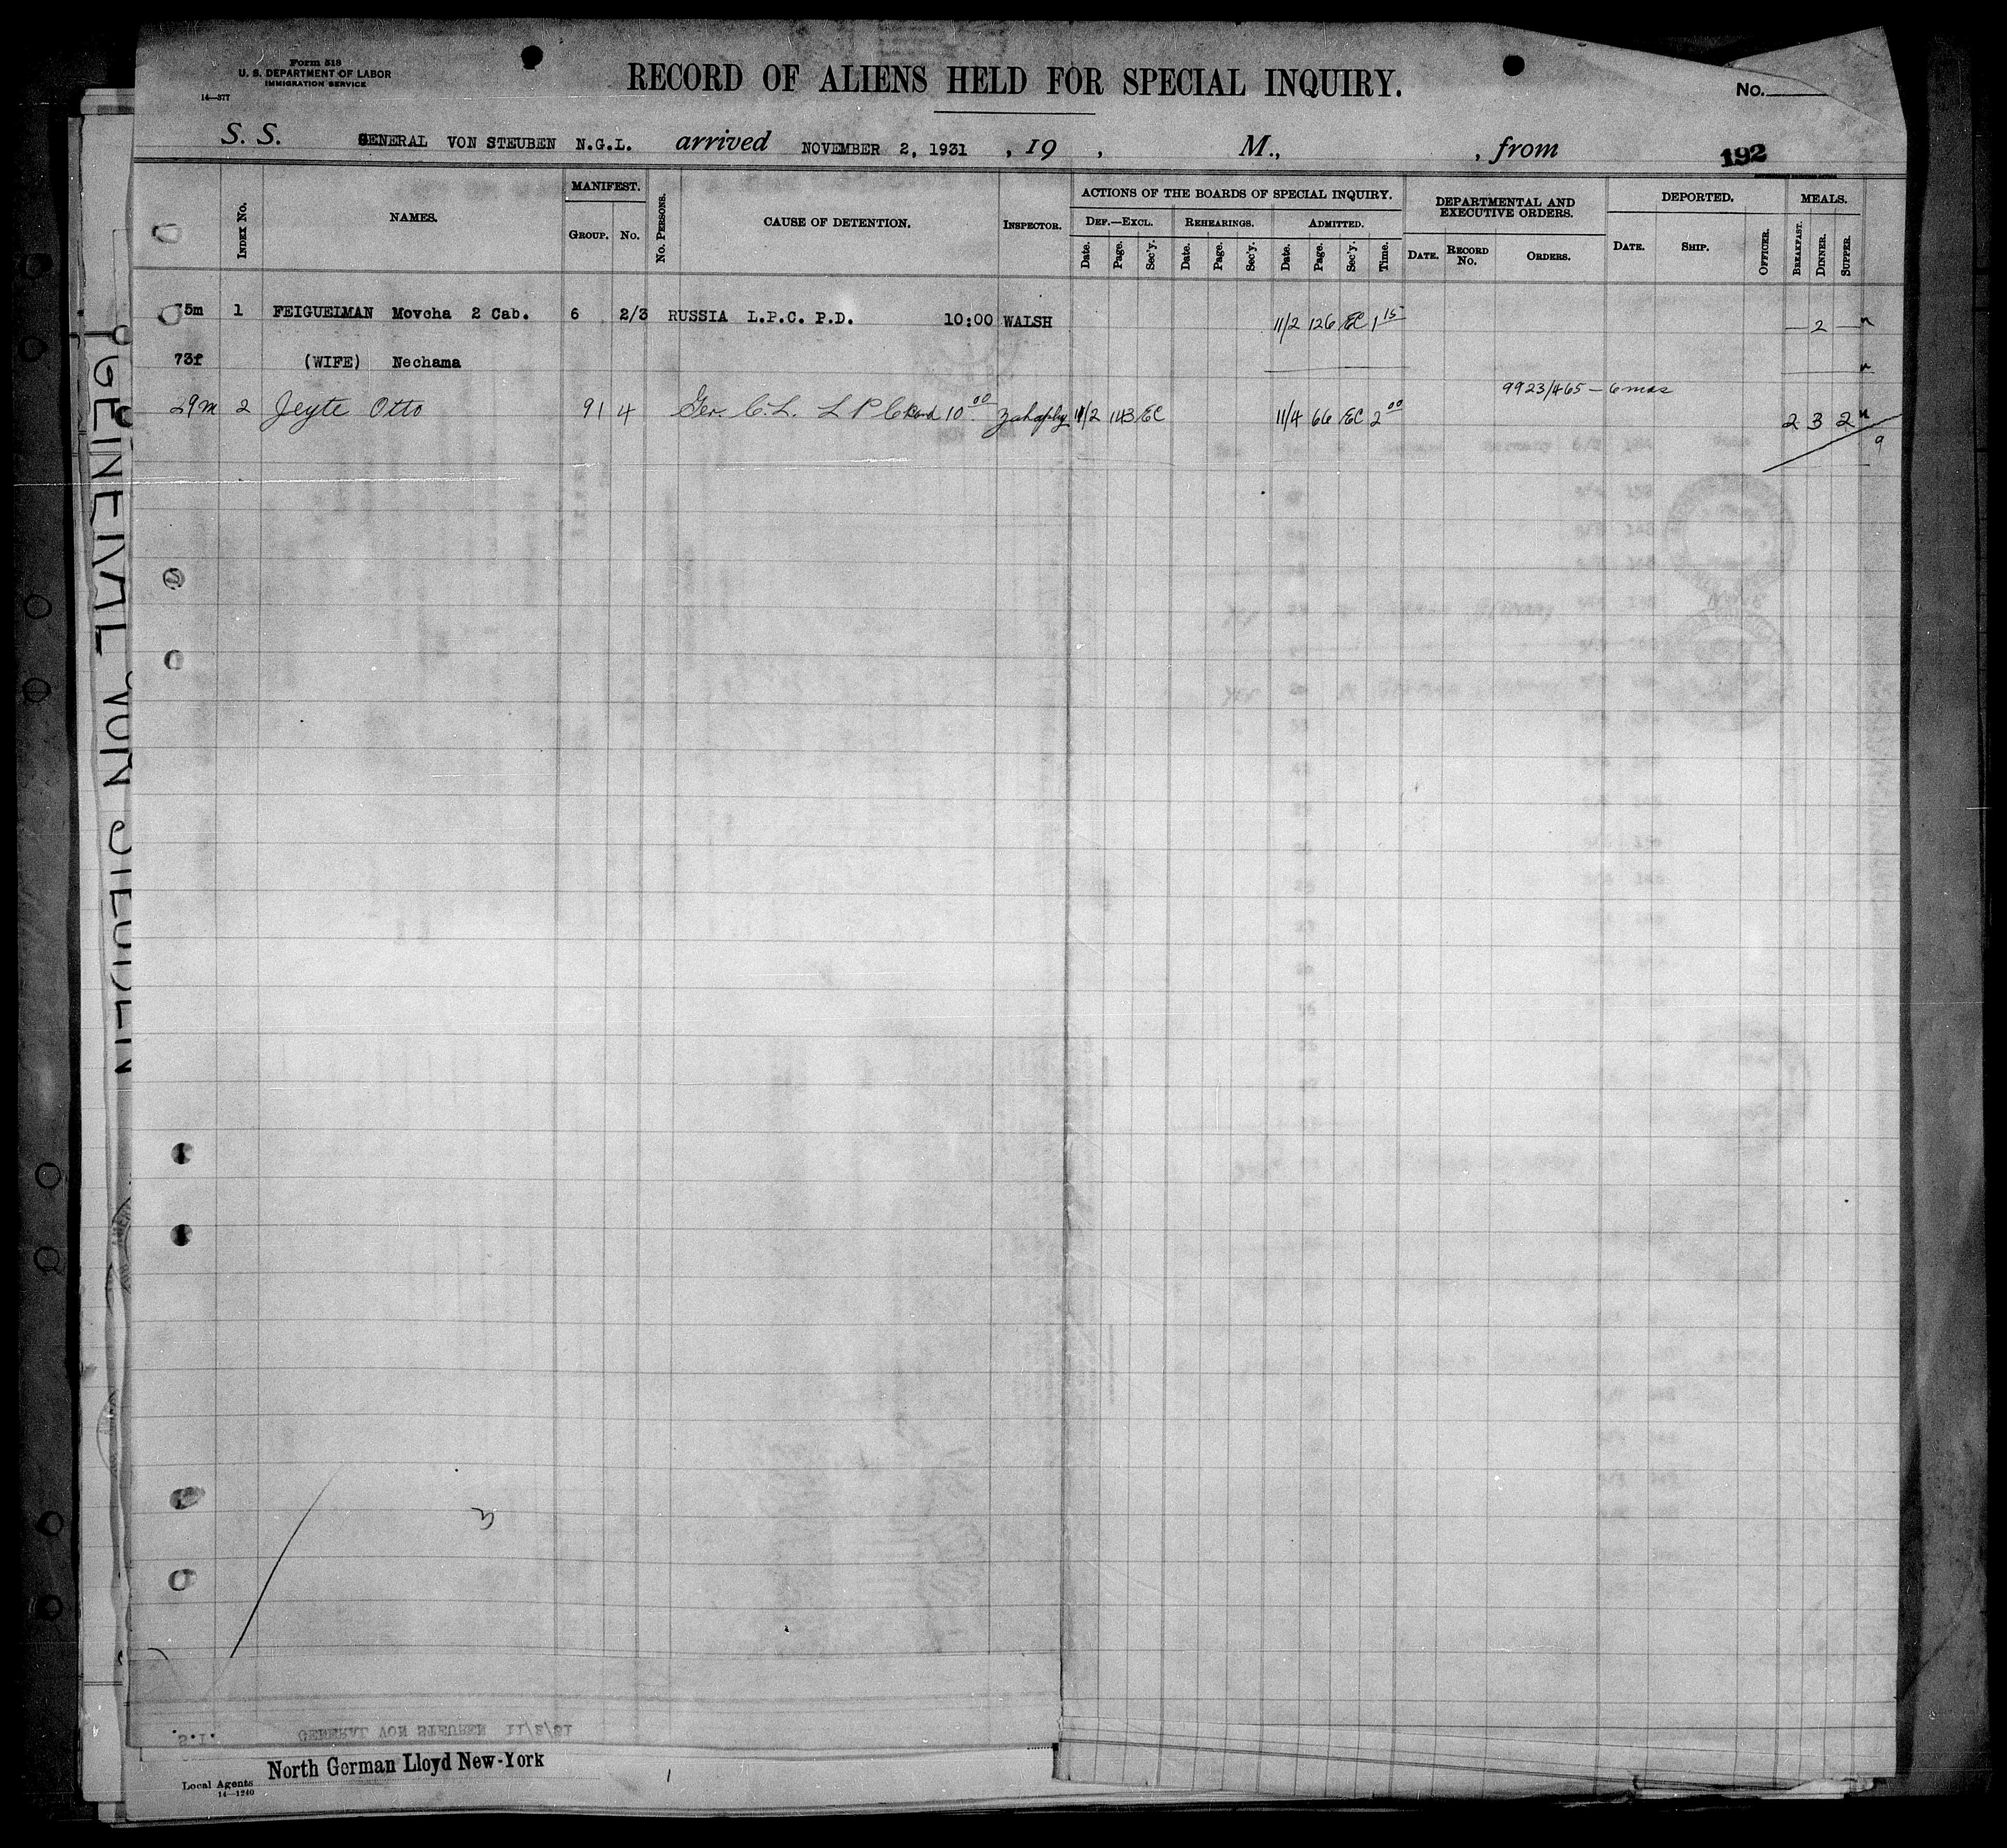 Form 518
U. S. DEPARTMENT OF LABOR
IMMIGRATION SERVICE
14—377
RECORD OF ALIENS HELD FOR SPECIAL INQUIRY.
No.
S. S. GENERAL VON STEUBEN N.G.L. arrived NOVEMBER 2, 1931 , 19 , M., , from 192
INDEX No. NAMES. MANIFEST. GROUP. No. No. PERSONS. CAUSE OF DETENTION. INSPECTOR.
ACTIONS OF THE BOARDS OF SPECIAL INQUIRY.
DEF.—EXCL. REHEARINGS. ADMITTED.
Date. Page. Sec'y. Date. Page. Sec'y. Date. Page. Sec'y. Time.
DEPARTMENTAL AND EXECUTIVE ORDERS.
DATE. RECORD No. ORDERS.
DEPORTED.
DATE. SHIP. OFFICER.
MEALS.
BREAKFAST. DINNER. SUPPER.
75m 1 FEIGUELMAN Movcha 2 Cab. 6 2/3 RUSSIA L.P.C. P.D. 10:00 WALSH 11/2 126 EC 1 15 — 2 —
73f (WIFE) Nechama
9923/465 — 6 mos
29m 2 Jeyte Otto 91 4 Ger. C.L. L P C 10 00 11/2 143 EC 11/4 66 EC 2 00 2 3 2
9
GENERAL VON STEUBEN
S.I. GENERAL VON STEUBEN
North German Lloyd New-York
Local Agents
14—1240